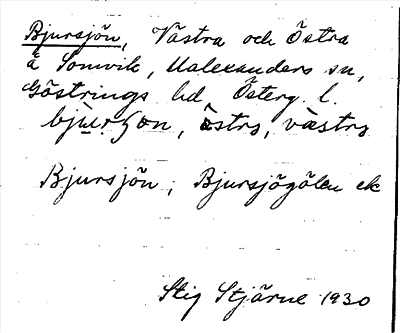 Bjursjön, Västra och Östra
å Somvik, Malexanders sn,
Göstrings hd, Österg. l.
bjurʃon, östra, västra
Bjursjön, Bjursjögölen ek
Stig Stjärne 1930